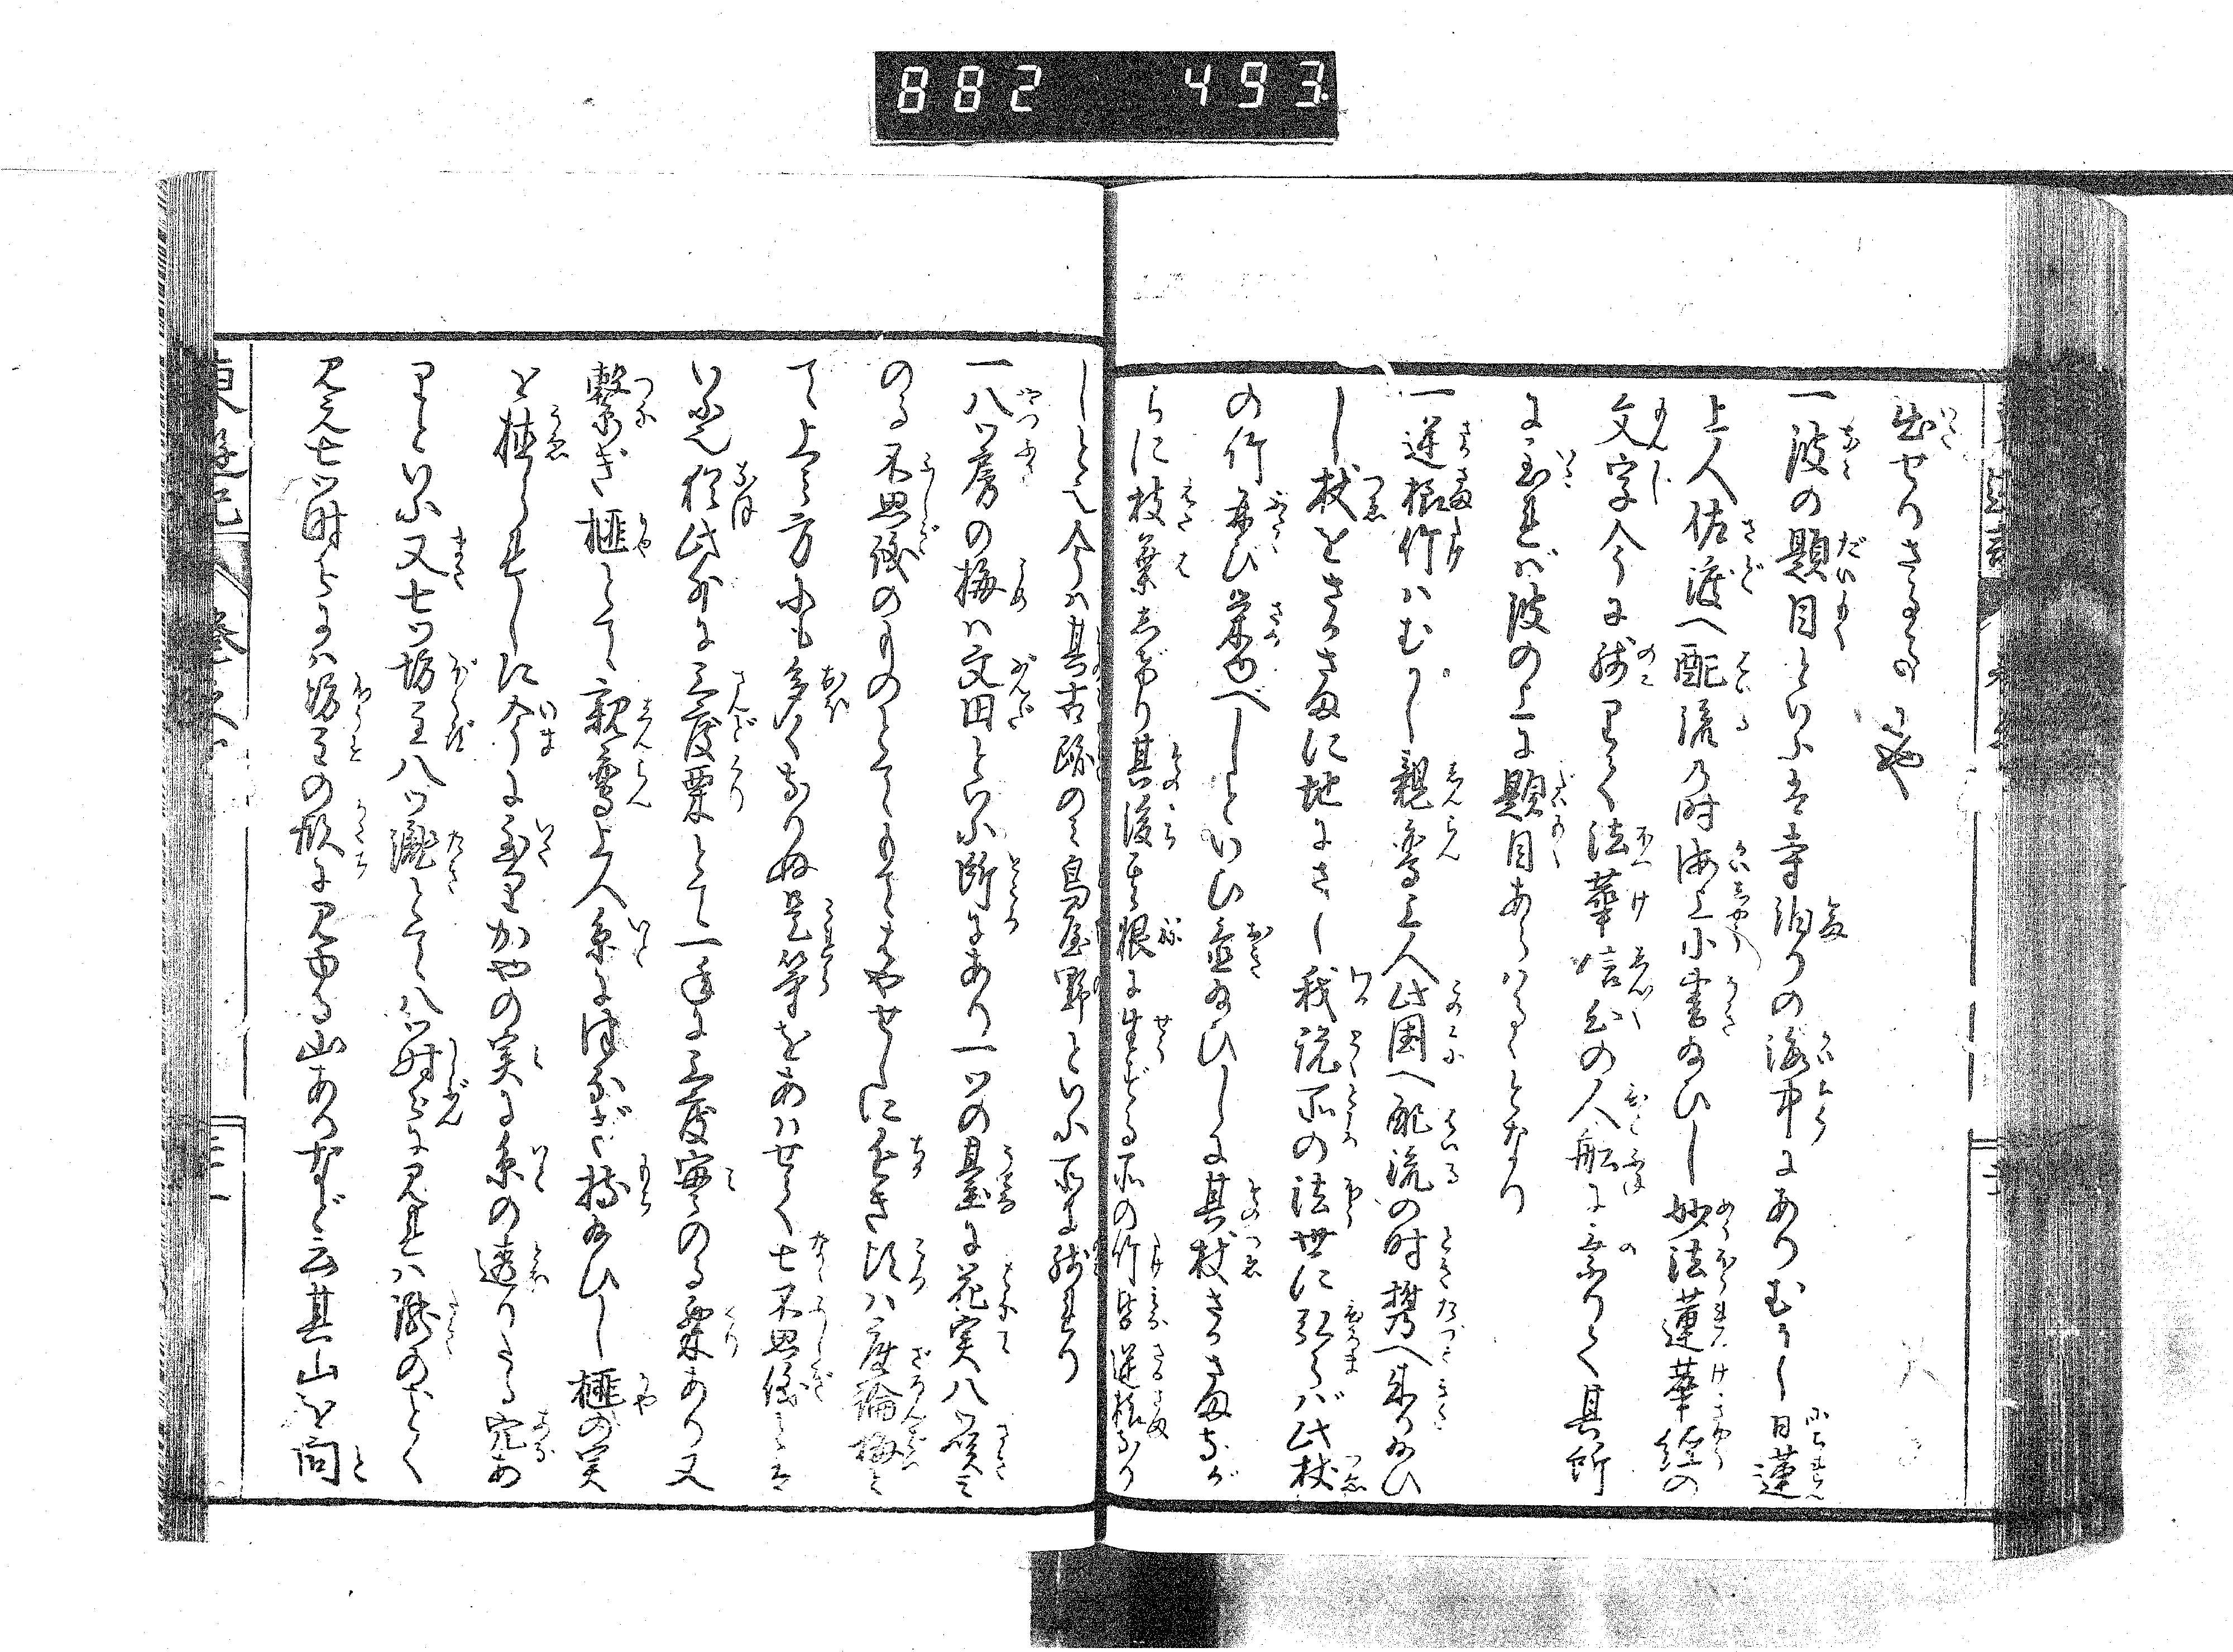 882 493.
出せりさるものにや
一波の題目といふは寺泊りの海中にありむかし日蓮
上人佐渡へ配流の時海上に書給ひし妙法蓮華経の
文字今に残りて法華信心の人船に乗りて其所
に至れば波の上に題目あらはるゝとなり
一逆様竹はむかし親鸞上人此国へ配流の時携へ来り給ひ
し杖をさかさまに地にさし我説所の法世に弘らば此杖
の竹再び栄ゆべしといひ置給ひしに其杖さかさまなが
らに枝葉しげり其後其根に生ずる所の竹皆逆様なり
しとぞ今は其古跡のミ鳥屋野といふ所に残れり
一八ツ房の梅は文田といふ所にあり一ツの臺に花実八ツ咲ミ
のる不思議のものとてもてはやせしに近き頃八度論梅ミ
て上ミ方にも多くなりぬ是等をあはせて七不思儀とは
いふ也猶此外に三度栗とて一年に三度実のる栗あり又
繋ぎ榧とて親鸞上人糸につなぎ持給ひし榧の実
を植られしに今に至りかやの実に糸の通りたる穴あ
りといふ又七ツ坊主八ツ瀧とて八ツ時分に見れは瀧のごとく
見え七ツ時分には坊主の形に見ゆる山ありなど云其山を問
東遊記 巻之 三十一